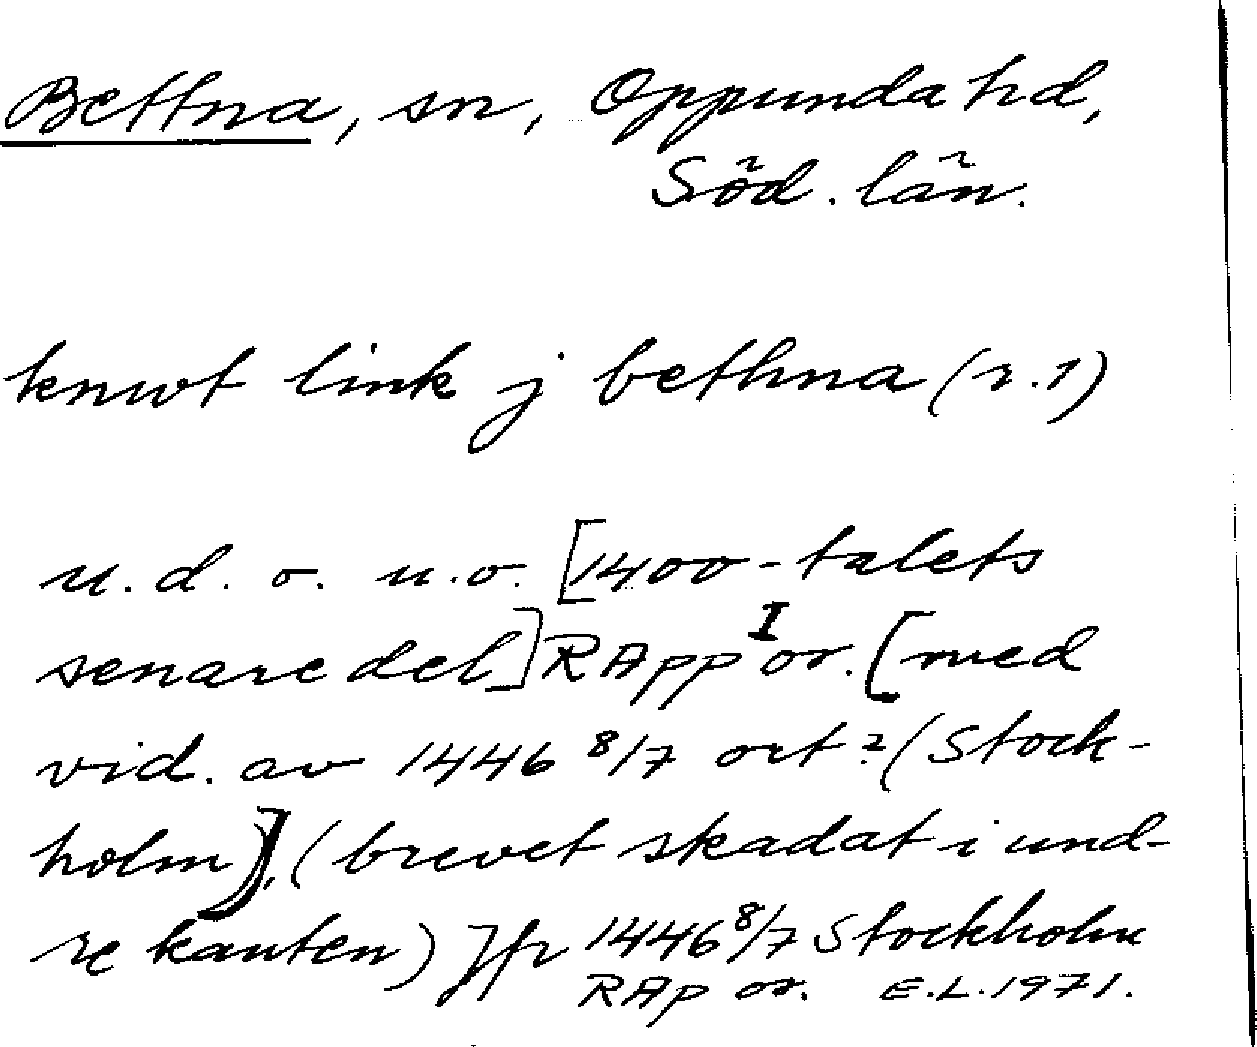 Bettna, sn, Oppunda hd,
Söd. län.
knwt link j bethna (r. 1)
u. d. o. u. o. [1400-talets
senare del] RApp I or. [med
vid. av 1446 8/7 ort? (Stock-
holm)], (brevet skadat i und-
re kanten) Jfr 1446 8/7 Stockholm
RAp or. E.L. 1971.